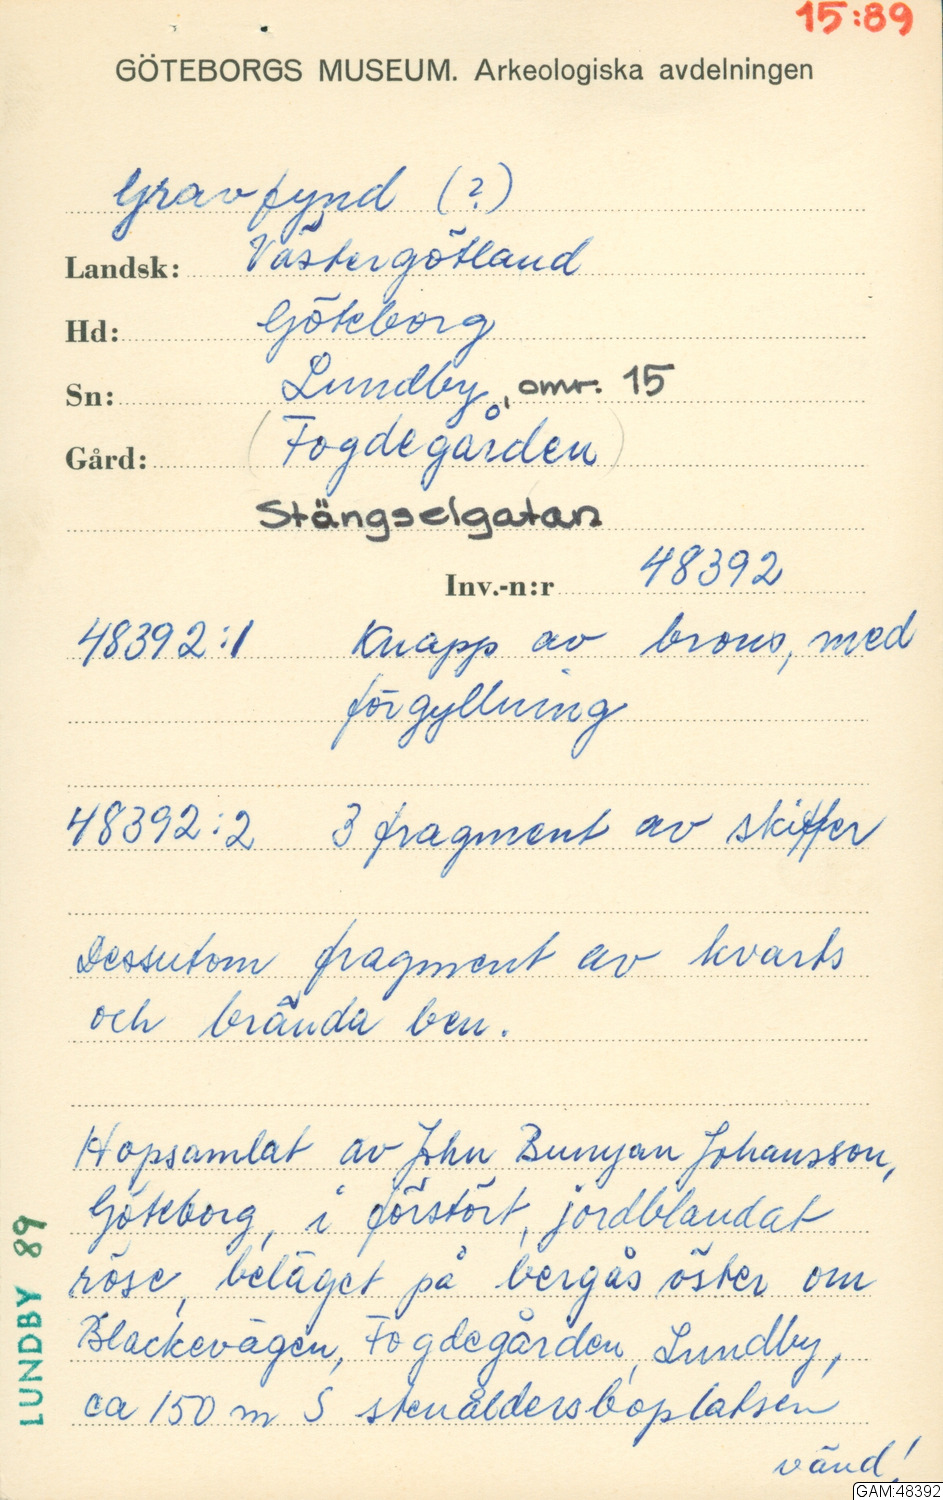 15:89
GÖTEBORGS MUSEUM. Arkeologiska avdelningen
Gravfynd (?)
Landsk: Västergötland
Hd: Göteborg
Sn: Lundby, omr. 15
Gård: (Fogdegården)
Stängselgatan
Inv.-n:r 48392
48392:1 Knapp av brons, med
förgyllning
48392:2 3 fragment av skiffer
Dessutom fragment av kvarts
och brända ben.
Hopsamlat av John Bunyan Johansson,
Göteborg, i förstört, jordblandat
röse, beläget på bergås öster om
Blackevägen, Fogdegården, Lundby,
ca 150 m S stenåldersboplatsen
vänd!
LUNDBY 89
GAM:48392